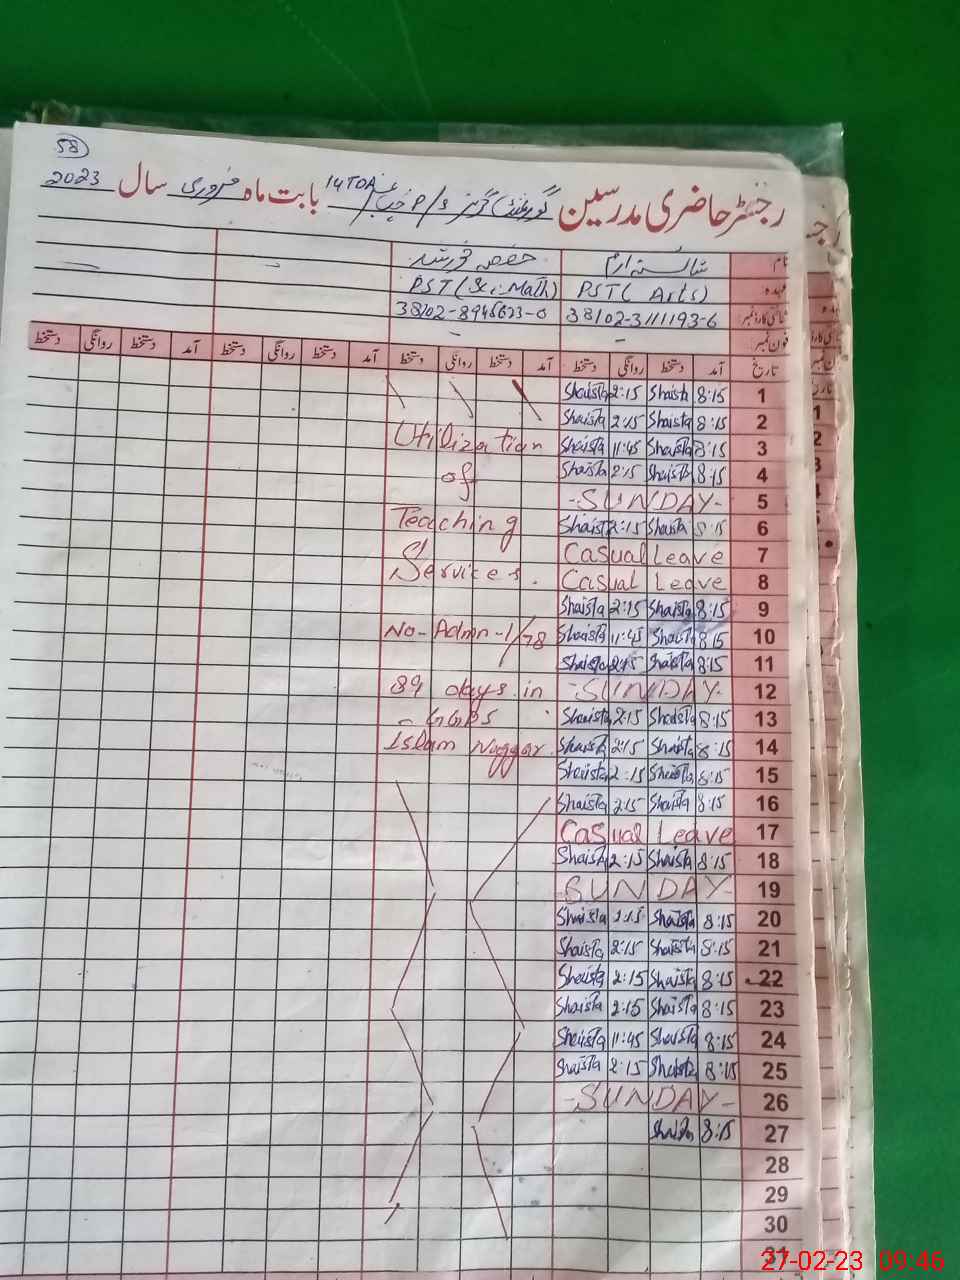 58
رجسٹر حاضری مدرسین گورنمنٹ گرلز P/S چک 14TDA بابت ماہ فروری سال 2023
نام شائستہ ارم حفصہ خورشید
عہدہ PST ( Arts) PST (Sc. Math)
شناختی کارڈ نمبر 38102-3111193-6 38102-8945623-0
فون نمبر - -
تاریخ آمد دستخط روانگی دستخط آمد دستخط روانگی دستخط آمد دستخط روانگی دستخط آمد دستخط روانگی دستخط
1 8:15 Shaista 2:15 Shaista
2 8:15 Shaista 2:15 Shaista
3 8:15 Shaista 11:45 Shaista
4 8:15 Shaista 2:15 Shaista
5 -SUNDAY-
6 8:15 Shaista 2:15 Shaista
7 Casual Leave
8 Casual Leave
9 8:15 Shaista 2:15 Shaista
10 8:15 Shaista 11:45 Shaista
11 8:15 Shaista 2:15 Shaista
12 -SUNDAY-
13 8:15 Shaista 2:15 Shaista
14 8:15 Shaista 2:15 Shaista
15 8:15 Shaista 2:15 Shaista
16 8:15 Shaista 2:15 Shaista
17 Casual Leave
18 8:15 Shaista 2:15 Shaista
19 SUNDAY-
20 8:15 Shaista 2:15 Shaista
21 8:15 Shaista 2:15 Shaista
22 8:15 Shaista 2:15 Shaista
23 8:15 Shaista 2:15 Shaista
24 8:15 Shaista 11:45 Shaista
25 8:15 Shaista 2:15 Shaista
26 -SUNDAY-
27 8:15 Shaista
28
29
30
31
Utilization
of
Teaching
Services.
No-Admn-1/78
89 days in
- GGPS
Islam Naggar.
27-02-23 09:46